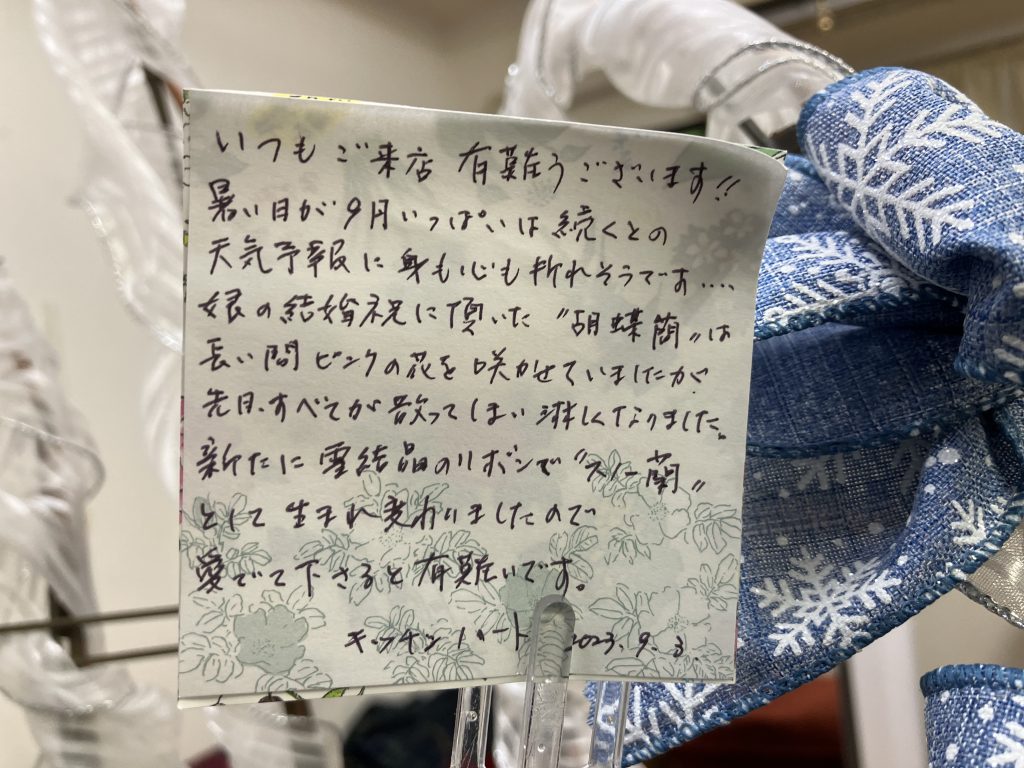 いつもご来店有難うございます!!
暑い日が9月いっぱいは続くとの
天気予報に身も心も折れそうです....
娘の結婚祝に頂いた〝胡蝶蘭〟は
長い間ピンクの花を咲かせていましたが
先日、すべてが散ってしまい淋しくなりました。
新たに雪結晶のリボンで〝スノー蘭〟
として生まれ変わりましたので
愛でて下さると有難いです。
キッチンハート 2023.9.3